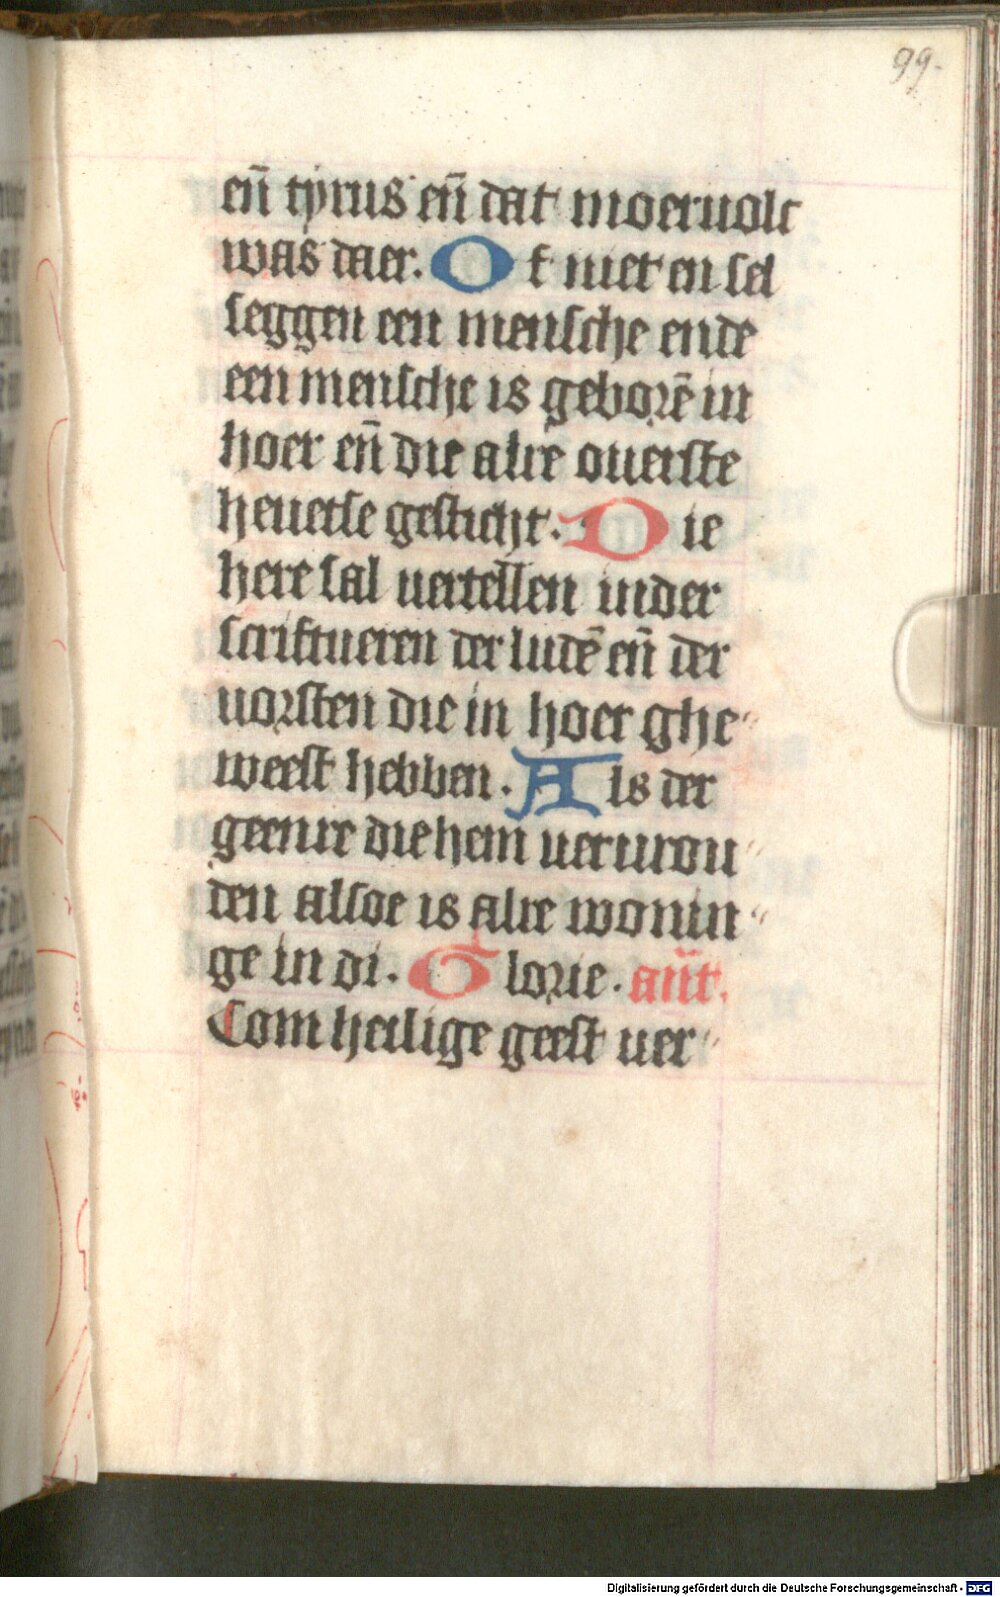 99.
en̄ tyrus en̄ dat moeruolc
was daer. O f niet en sel
seggen een mensche ende
een mensche is geborē in
hoer en̄ die alre ouerste
heuetse gesticht. D ie
here sal uertellen inder
scriftueren der ludē en̄ der
uorsten die in hoer ghe
weest hebben. A ls der
geenre die hem uerurou
den alsoe is alre wonin
ge in di. G lorie. an̄t.
Com heilige geest uer
Digitalisierung gefördert durch die Deutsche Forschungsgemeinschaft - DFG